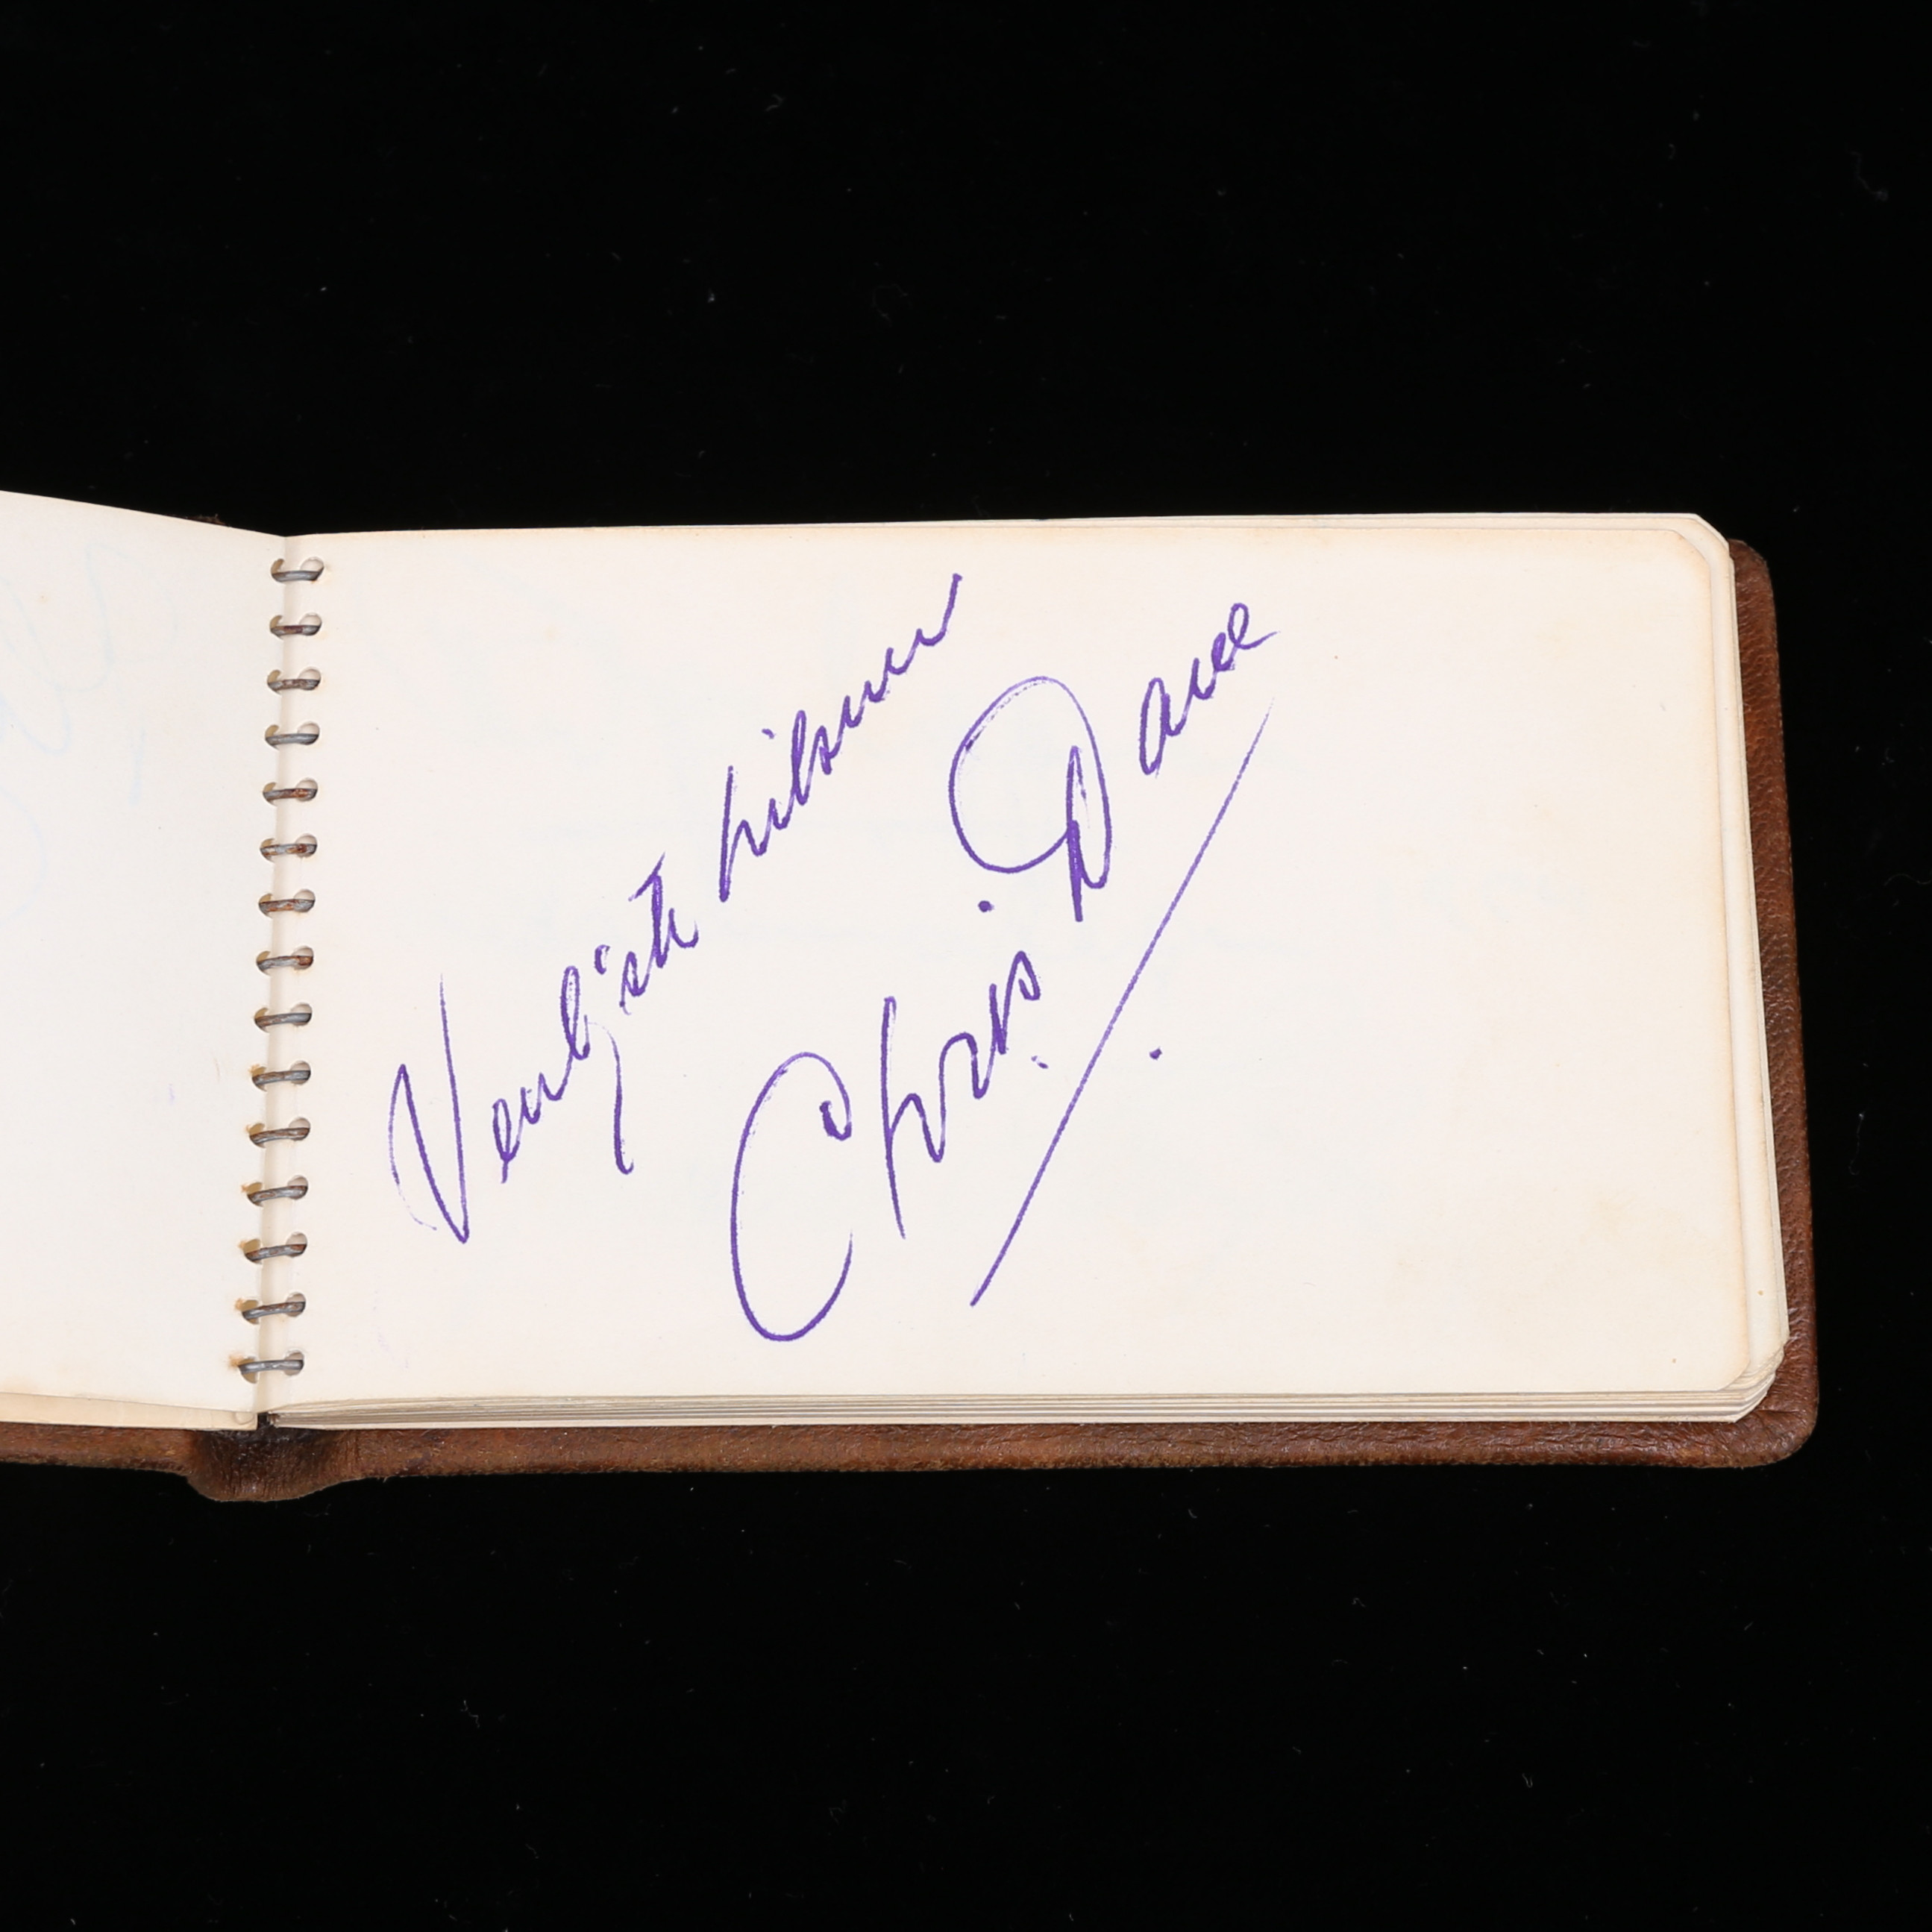 Venligst hilsen
Chris Dane